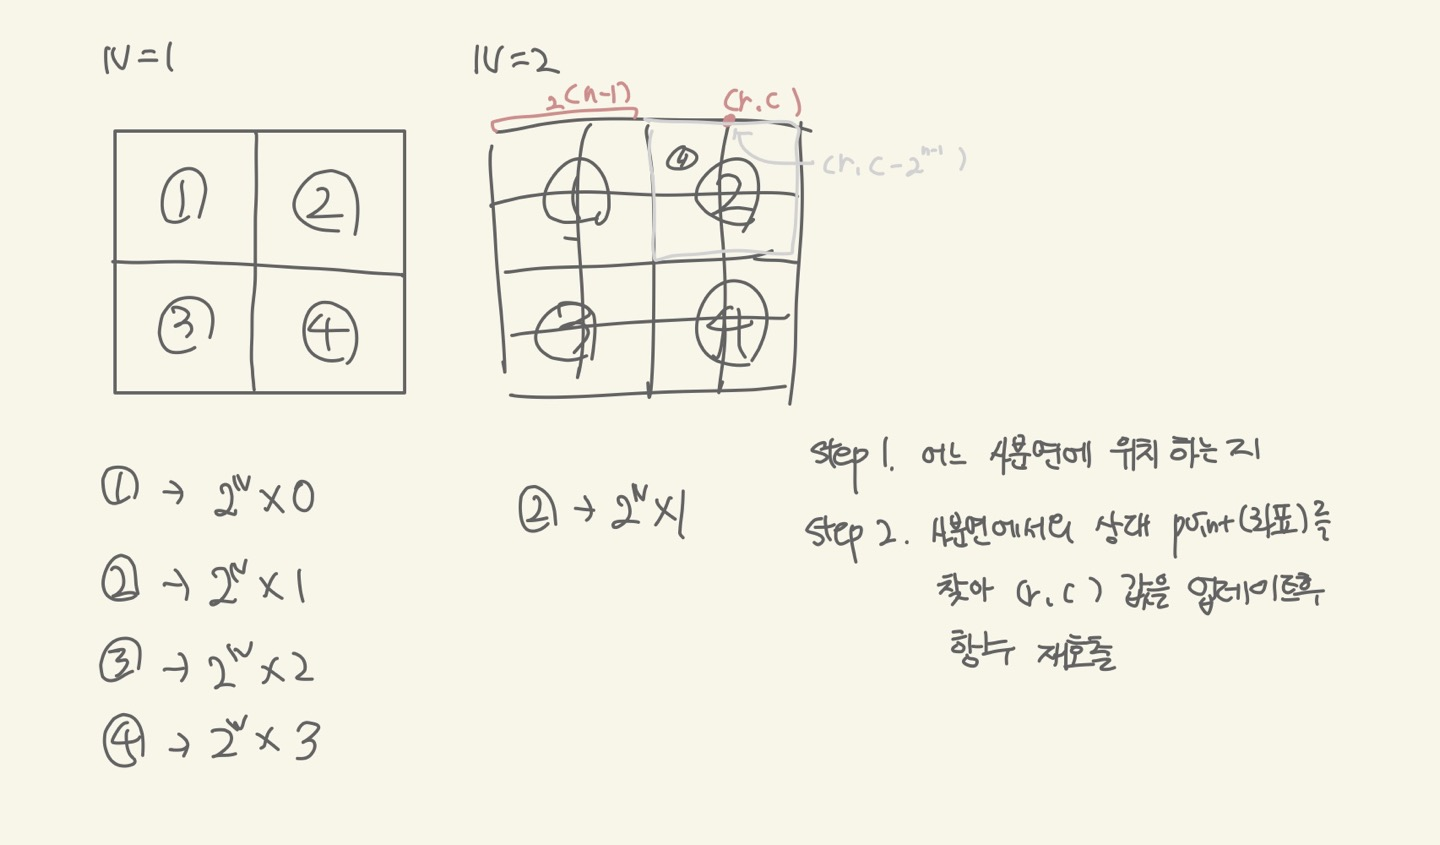 N=1
N=2
2(n-1)
(r.c)
① ②
③ ④
① ④ ②
③ ④
(r, c-2ⁿ⁻¹)
① → 2ᴺ×0
② → 2ᴺ×1
③ → 2ᴺ×2
④ → 2ᴺ×3
② → 2ᴺ×1
Step 1. 어느 사분면에 위치하는지
Step 2. 사분면에서의 상대 point(좌표)를
찾아 (r.c) 값을 업데이트후
함수 재호출